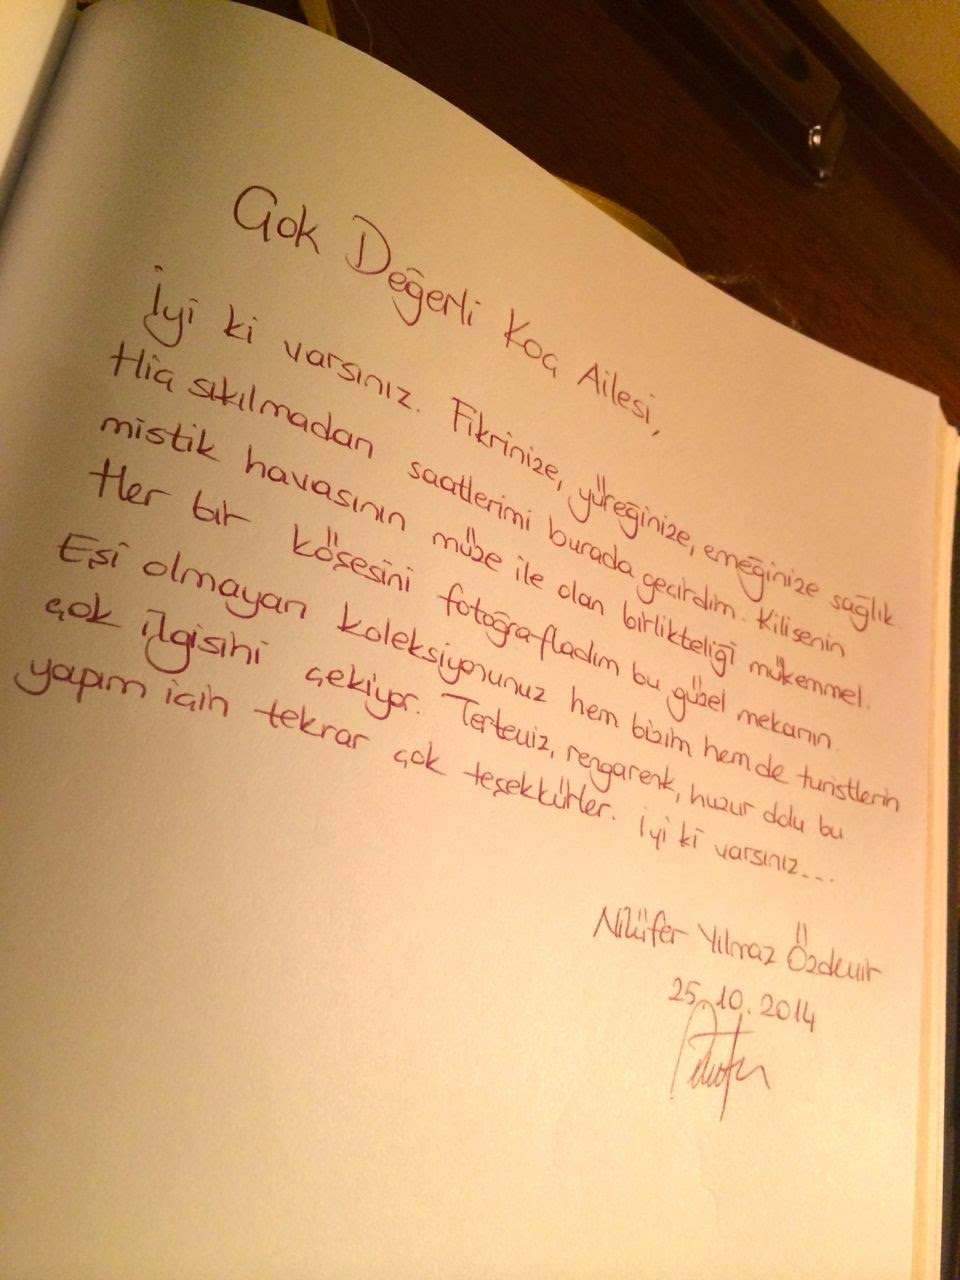 Çok Değerli Koç Ailesi,
İyi ki varsınız. Fikrinize, yüreğinize, emeğinize sağlık.
Hiç sıkılmadan saatlerimi burada geçirdim. Kilisenin
mistik havasının müze ile olan birlikteliği mükemmel.
Her bir köşesini fotoğrafladım bu güzel mekanın.
Eşi olmayan koleksiyonunuz hem bizim hem de turistlerin
çok ilgisini çekiyor. Tertemiz, rengarenk, huzur dolu bu
yapım için tekrar çok teşekkürler. İyi ki varsınız...
Nilüfer Yılmaz Özdemir
25.10.2014